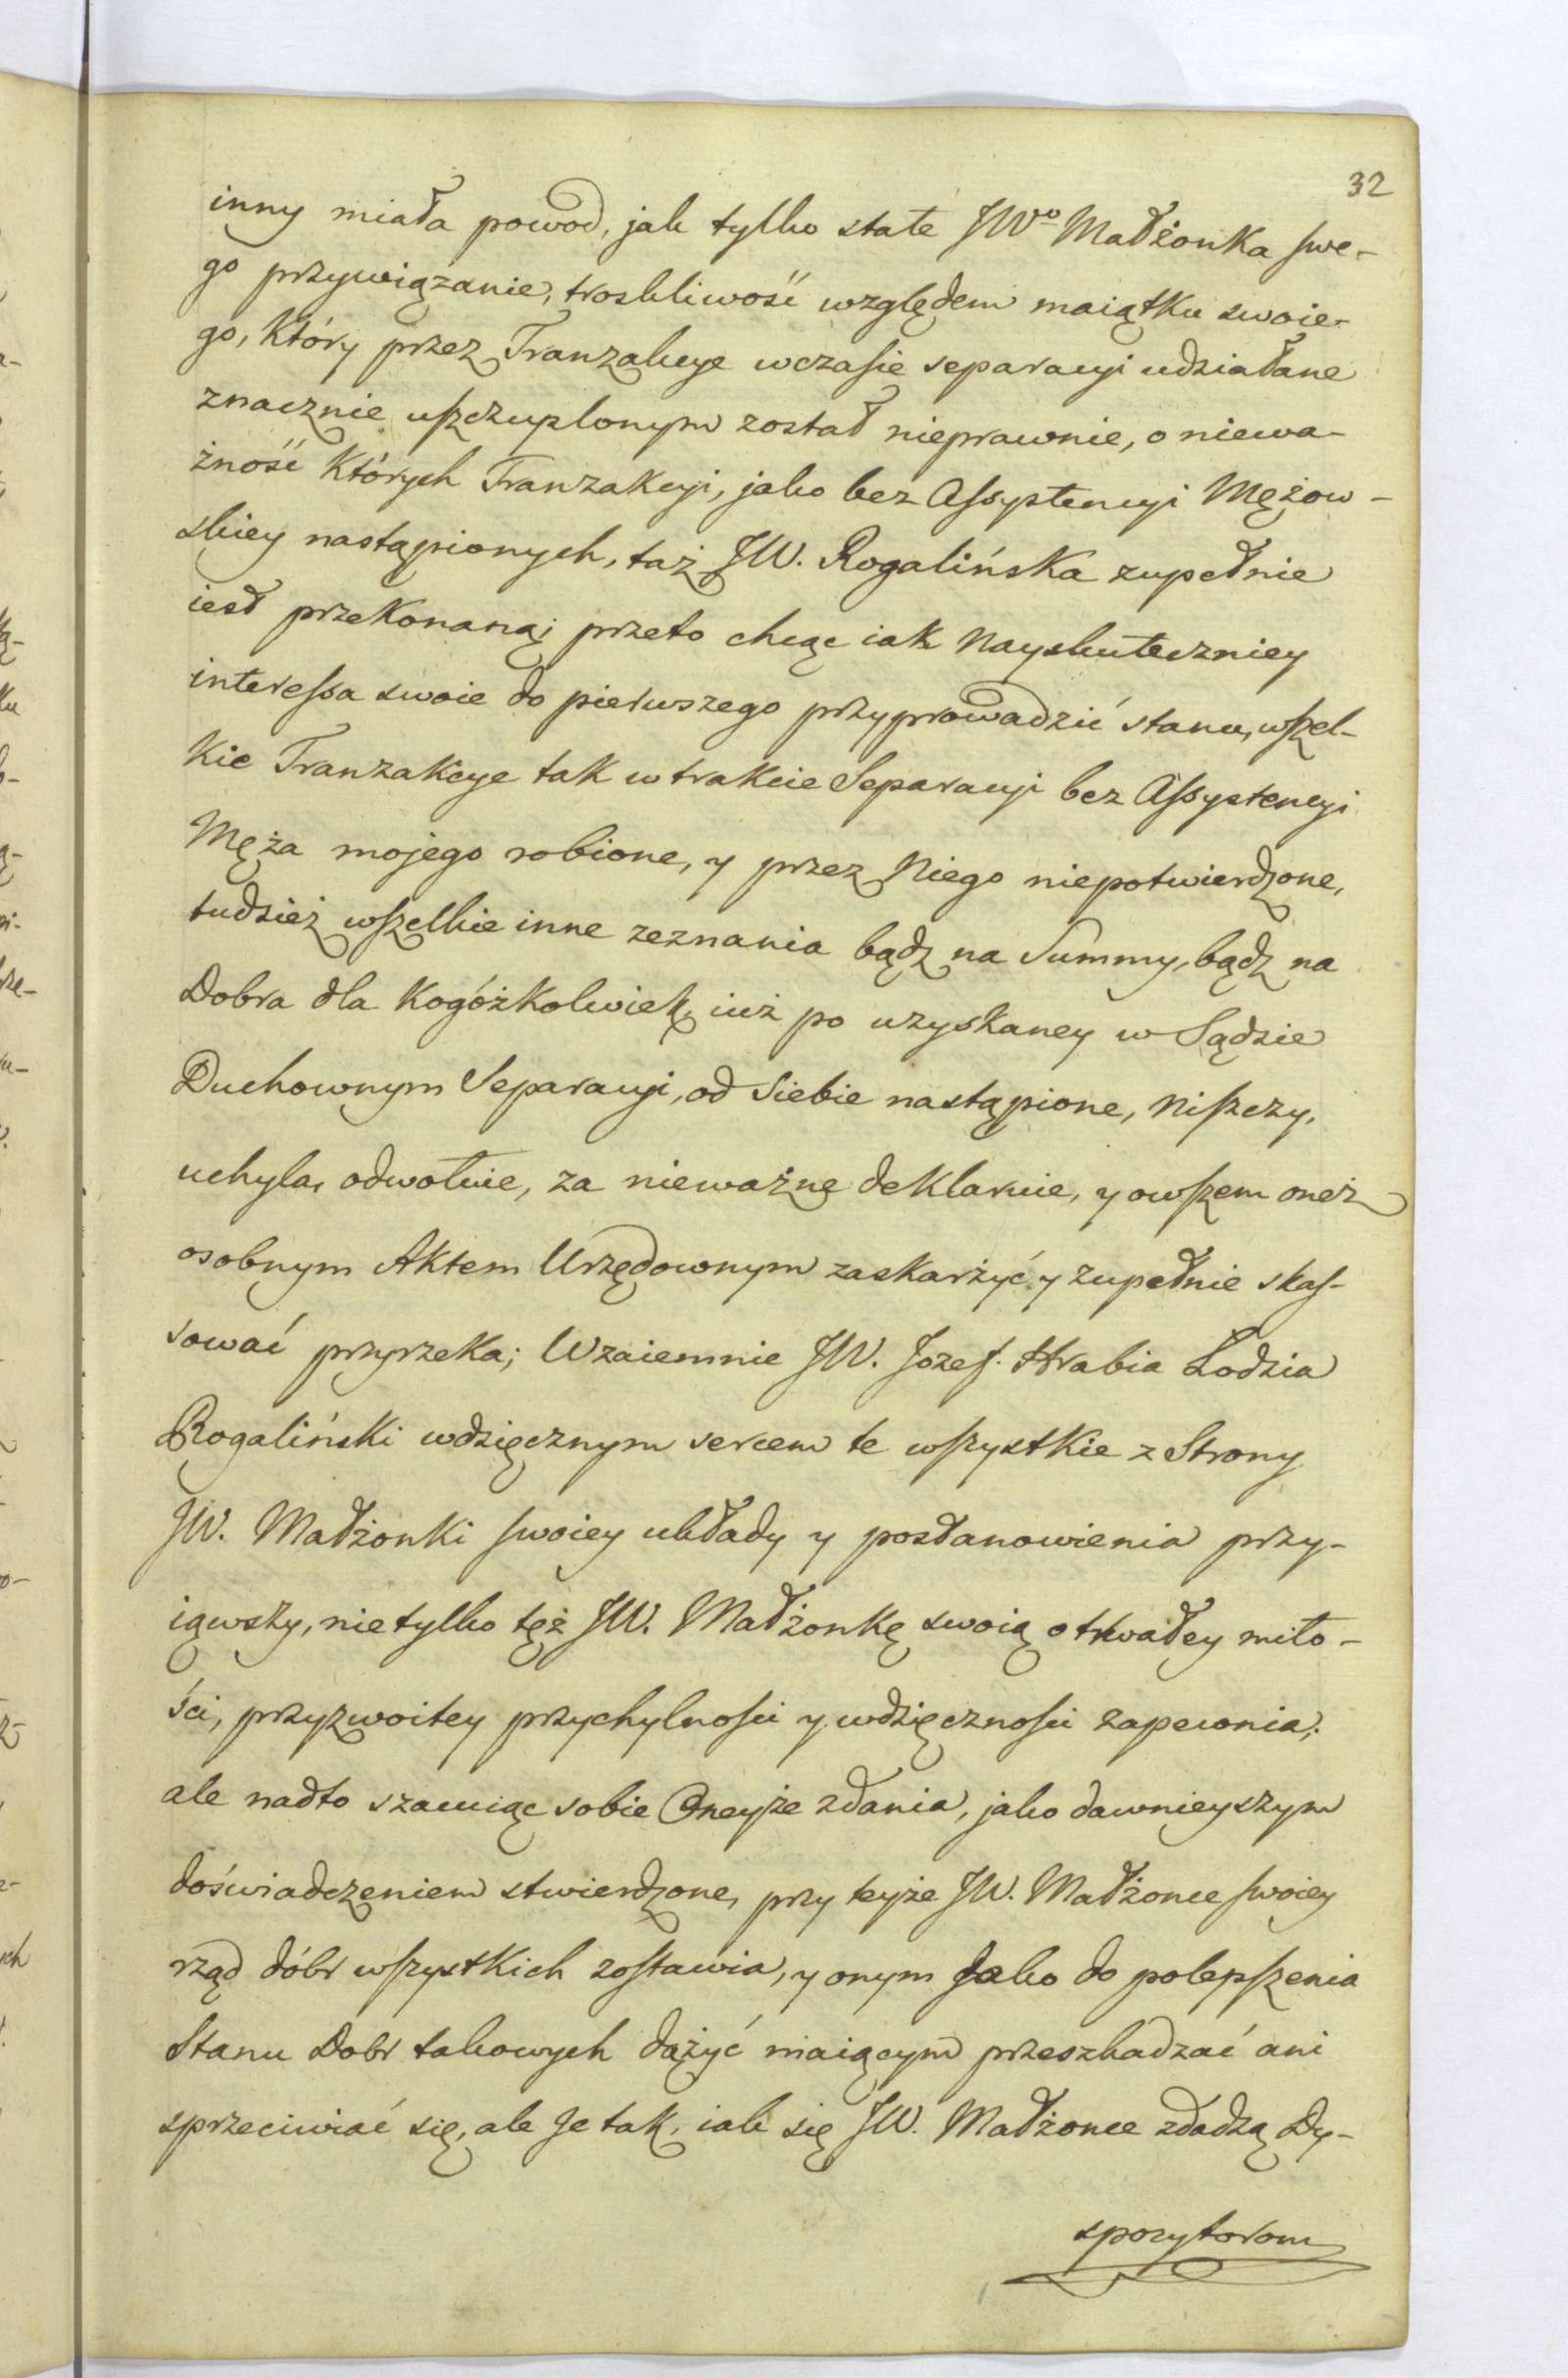 32
inny miała powod, jak tylko stałe JWo Małżonka swe-
go przywiązanie, troskliwość względem maiątku swoie-
go, który przez Tranzakcye wczasie separacyi udziałane
znacznie uszczuplonym został nieprawnie, o niewa-
żność których Tranzakcyi, jako bez Assystencyi Mężow-
skiey nastąpionych, taż JW. Rogalińska zupełnie
iest przekonaną; przeto chcąc iak Nayskuteczniey
interessa swoie do pierwszego przyprowadzić stanu, wszel-
kie Tranzakcye tak w trakcie Separacyi bez Assystencyi
Męża mojego robione, y przez Niego niepotwierdzone,
tudzież wszelkie inne zeznania bądz na Summy, bądz na
Dobra dla kogóżkolwiek, iuż po uzyskaney w Sądzie
Duchownym Separacyi, od Siebie nastąpione, Niszczy,
uchyla, odwołuie, za nieważne deklaruie, y owszem oneż
osobnym Aktem Urzędownym zaskarżyć y zupełnie skas-
sować przyrzeka; Wzaiemnie JW. Jozef Hrabia Łodzia
Rogaliński wdzięcznym sercem te wszystkie z Strony
JW. Małżonki swoiey układy y postanowienia przy-
iąwszy, nietylko tęż JW. Małżonkę swoią o trwałey miło-
ści, przyzwoitey przychylności y wdzięczności zapewnia;
ale nadto szacuiąc sobie Oneyże zdania, jako dawnieyszym
doświadczeniem stwierdzone, przy teyże JW. Małżonce swoiey
rząd dóbr wszystkich zostawia, y onym Jako do polepszenia
Stanu Dobr takowych dążyć maiącym przeszkadzać ani
sprzeciwiać się, ale Je tak, iak się JW. Małżonce zdadzą Dy-
spozytorom